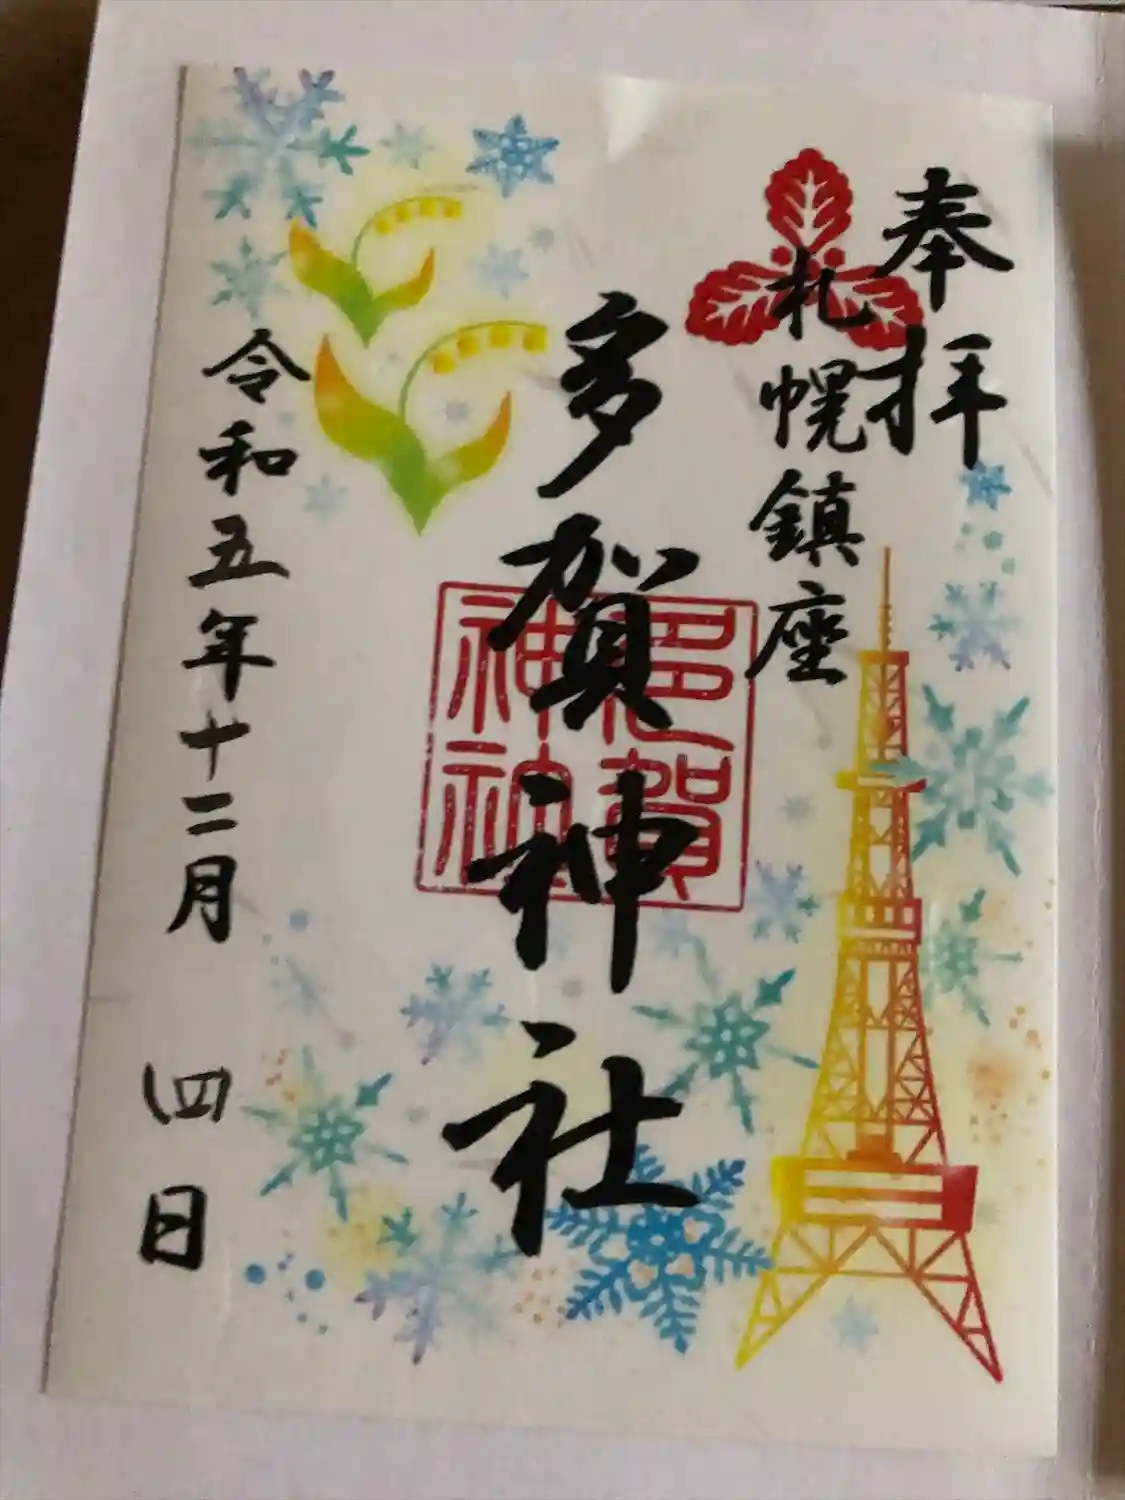 奉拝
札幌鎮座
多賀神社
多賀神社
令和五年十二月 四日